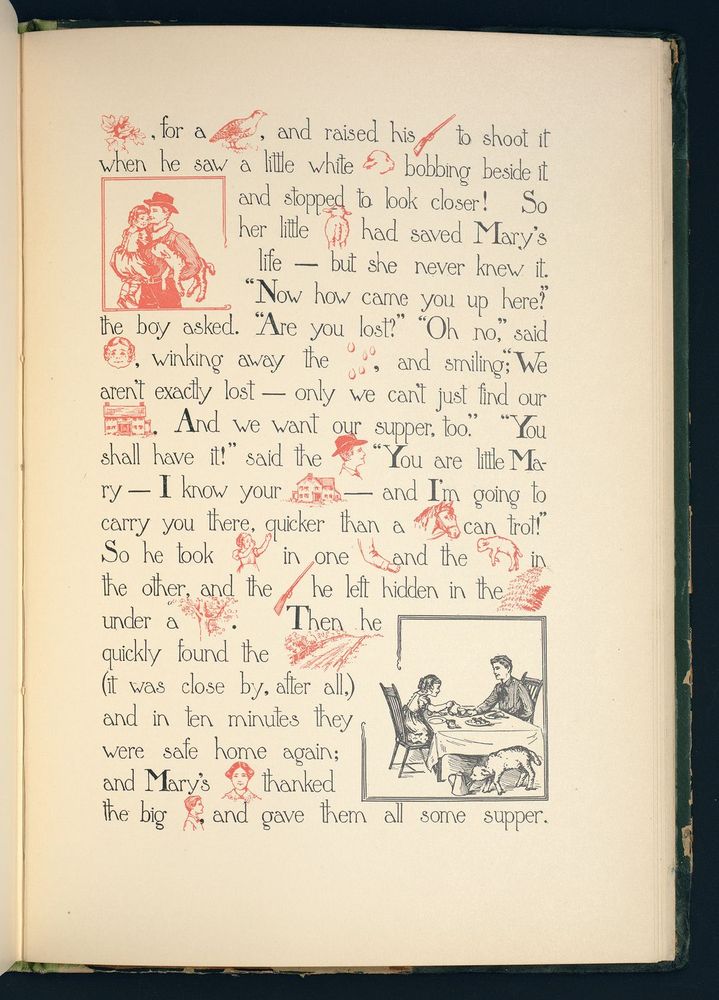 , for a , and raised his to shoot it
when he saw a little white bobbing beside it
and stopped to look closer! So
her little had saved Mary's
life — but she never knew it.
"Now how came you up here?"
the boy asked. "Are you lost?" "Oh no," said
, winking away the , and smiling; "We
aren't exactly lost — only we can't just find our
. And we want our supper, too." "You
shall have it!" said the "You are little Ma-
ry — I know your — and I'm going to
carry you there, quicker than a can trot!"
So he took in one and the in
the other, and the he left hidden in the
under a . Then he
quickly found the
(it was close by, after all,)
and in ten minutes they
were safe home again;
and Mary's thanked
the big , and gave them all some supper.